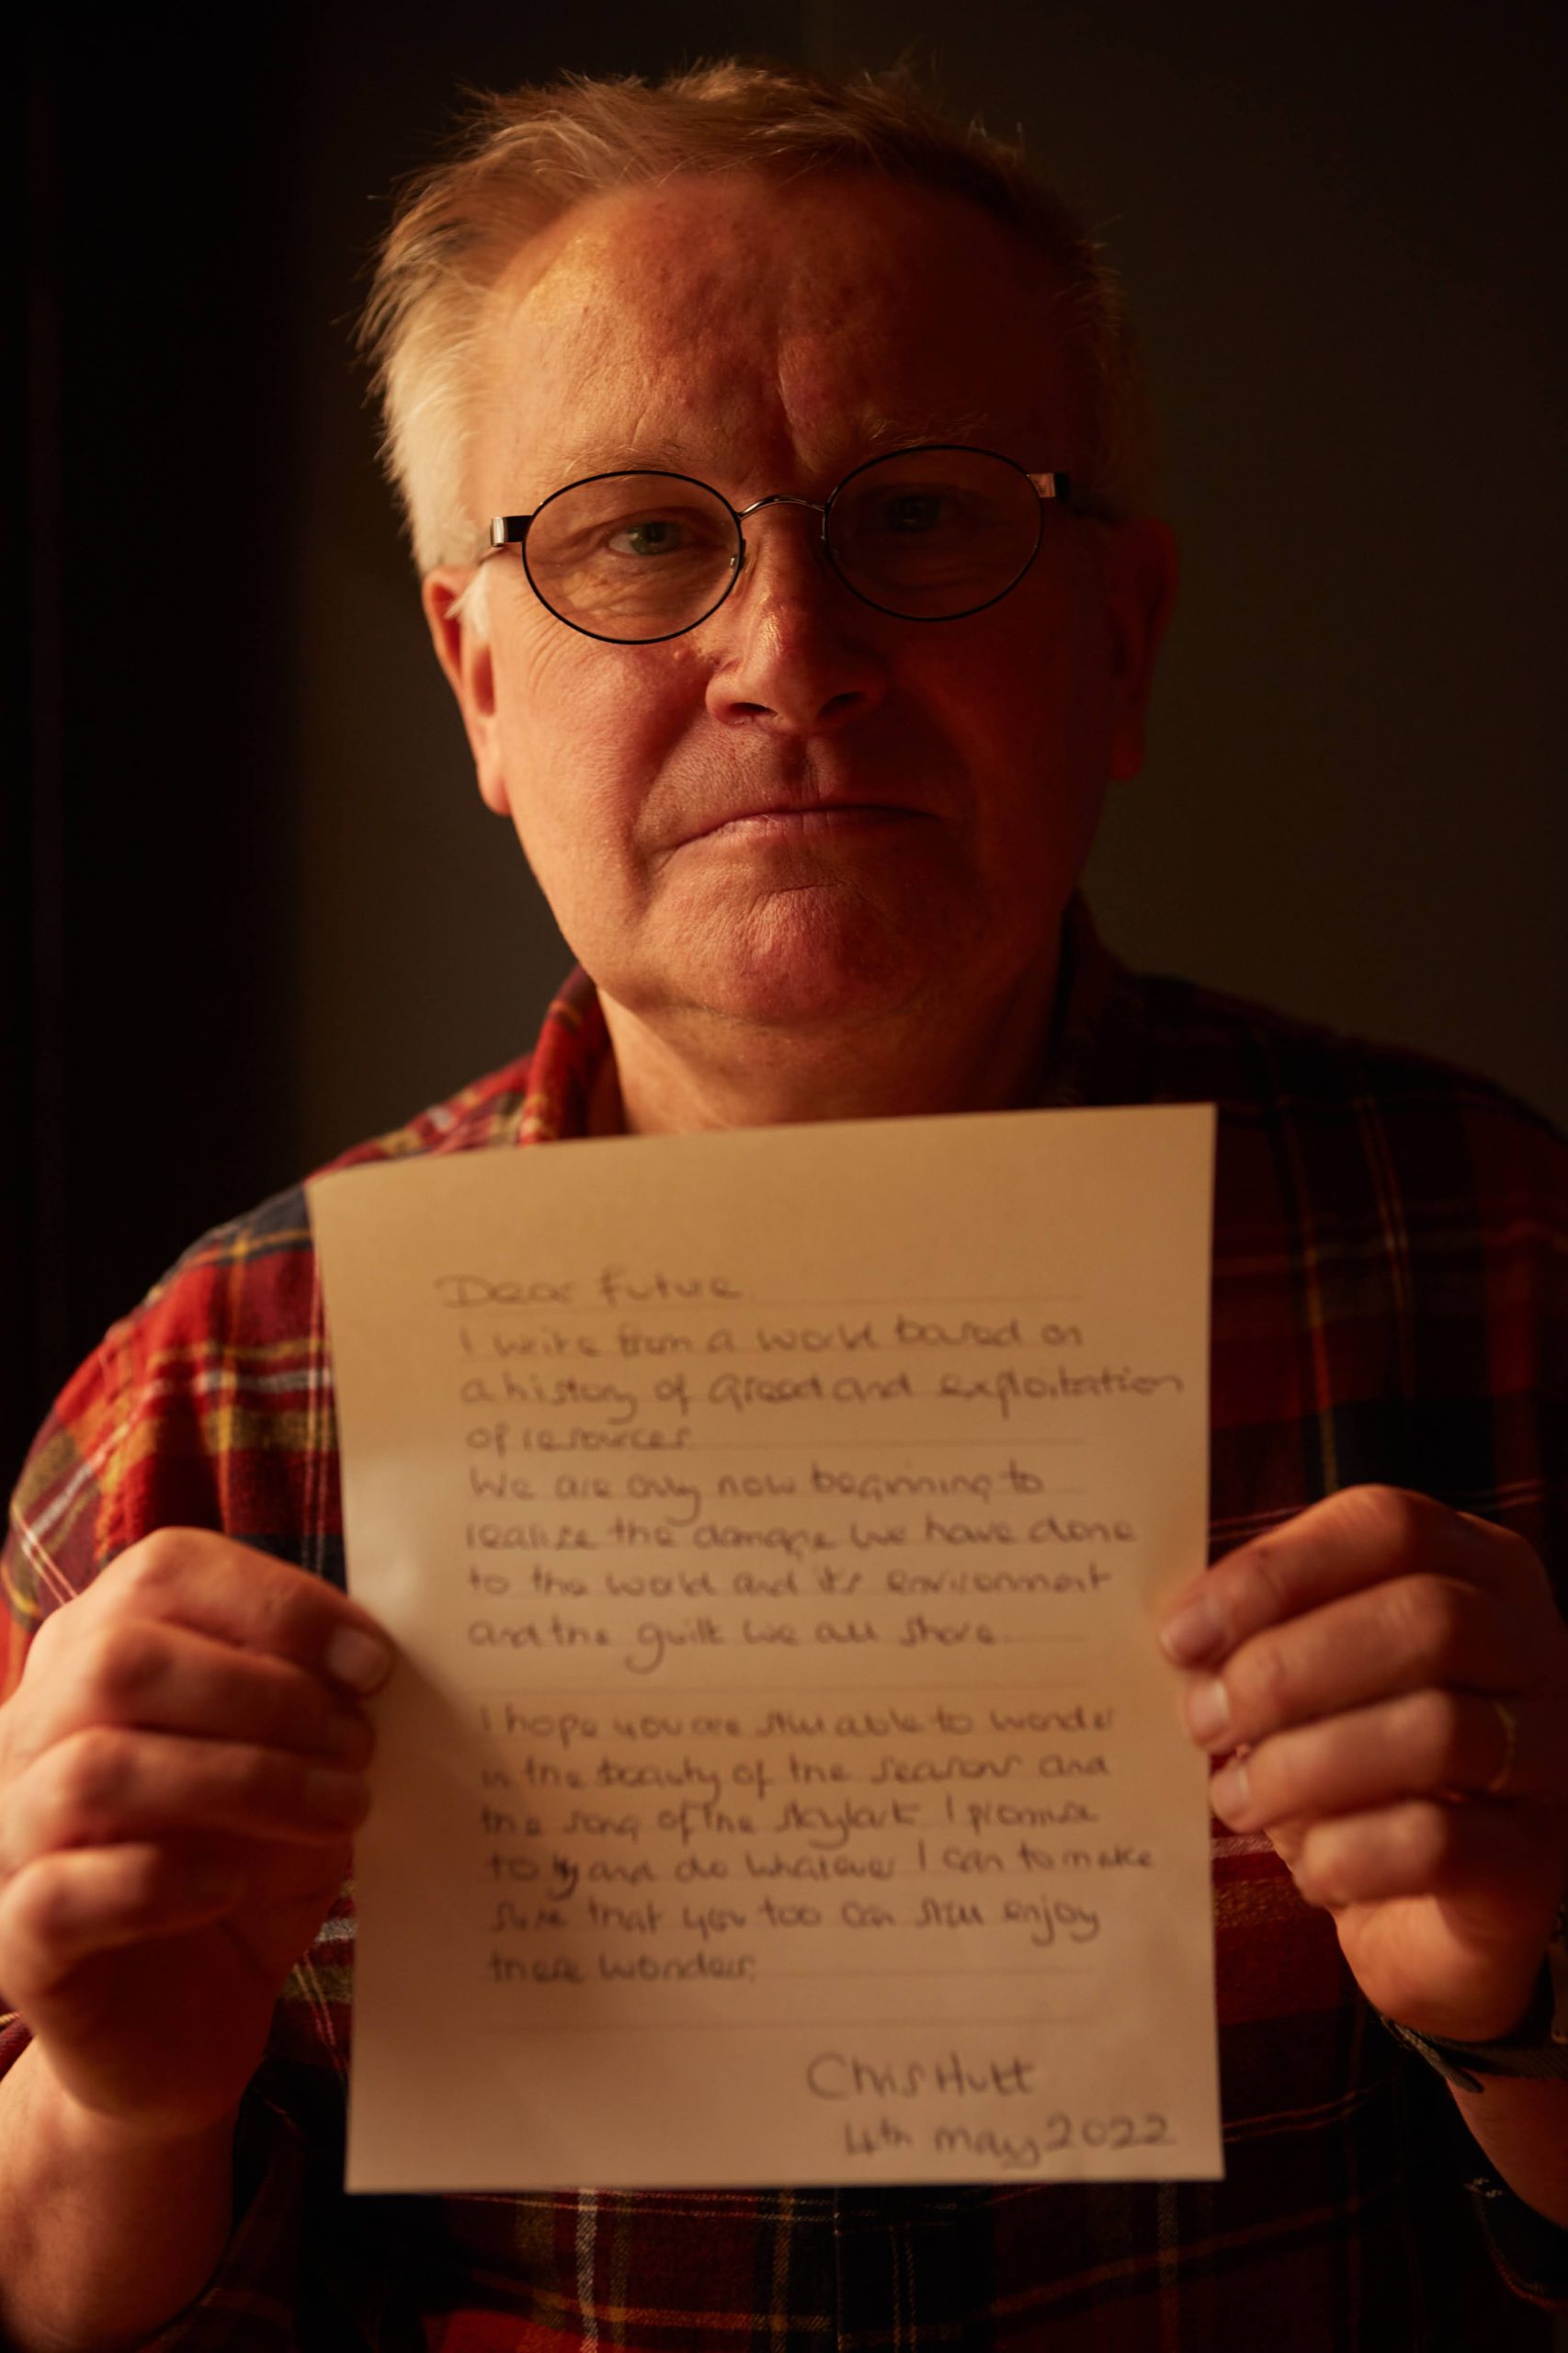 Dear future
I write from a world based on
a history of Greed and exploitation
of resources
We are only now beginning to
realize the damage we have done
to the world and it's environment
and the guilt we all share.
I hope you are still able to wonder
in the beauty of the seasons and
the song of the skylark I promise
to try and do whatever I can to make
sure that you too can still enjoy
these wonders.
Chris Hutt
4th may 2022